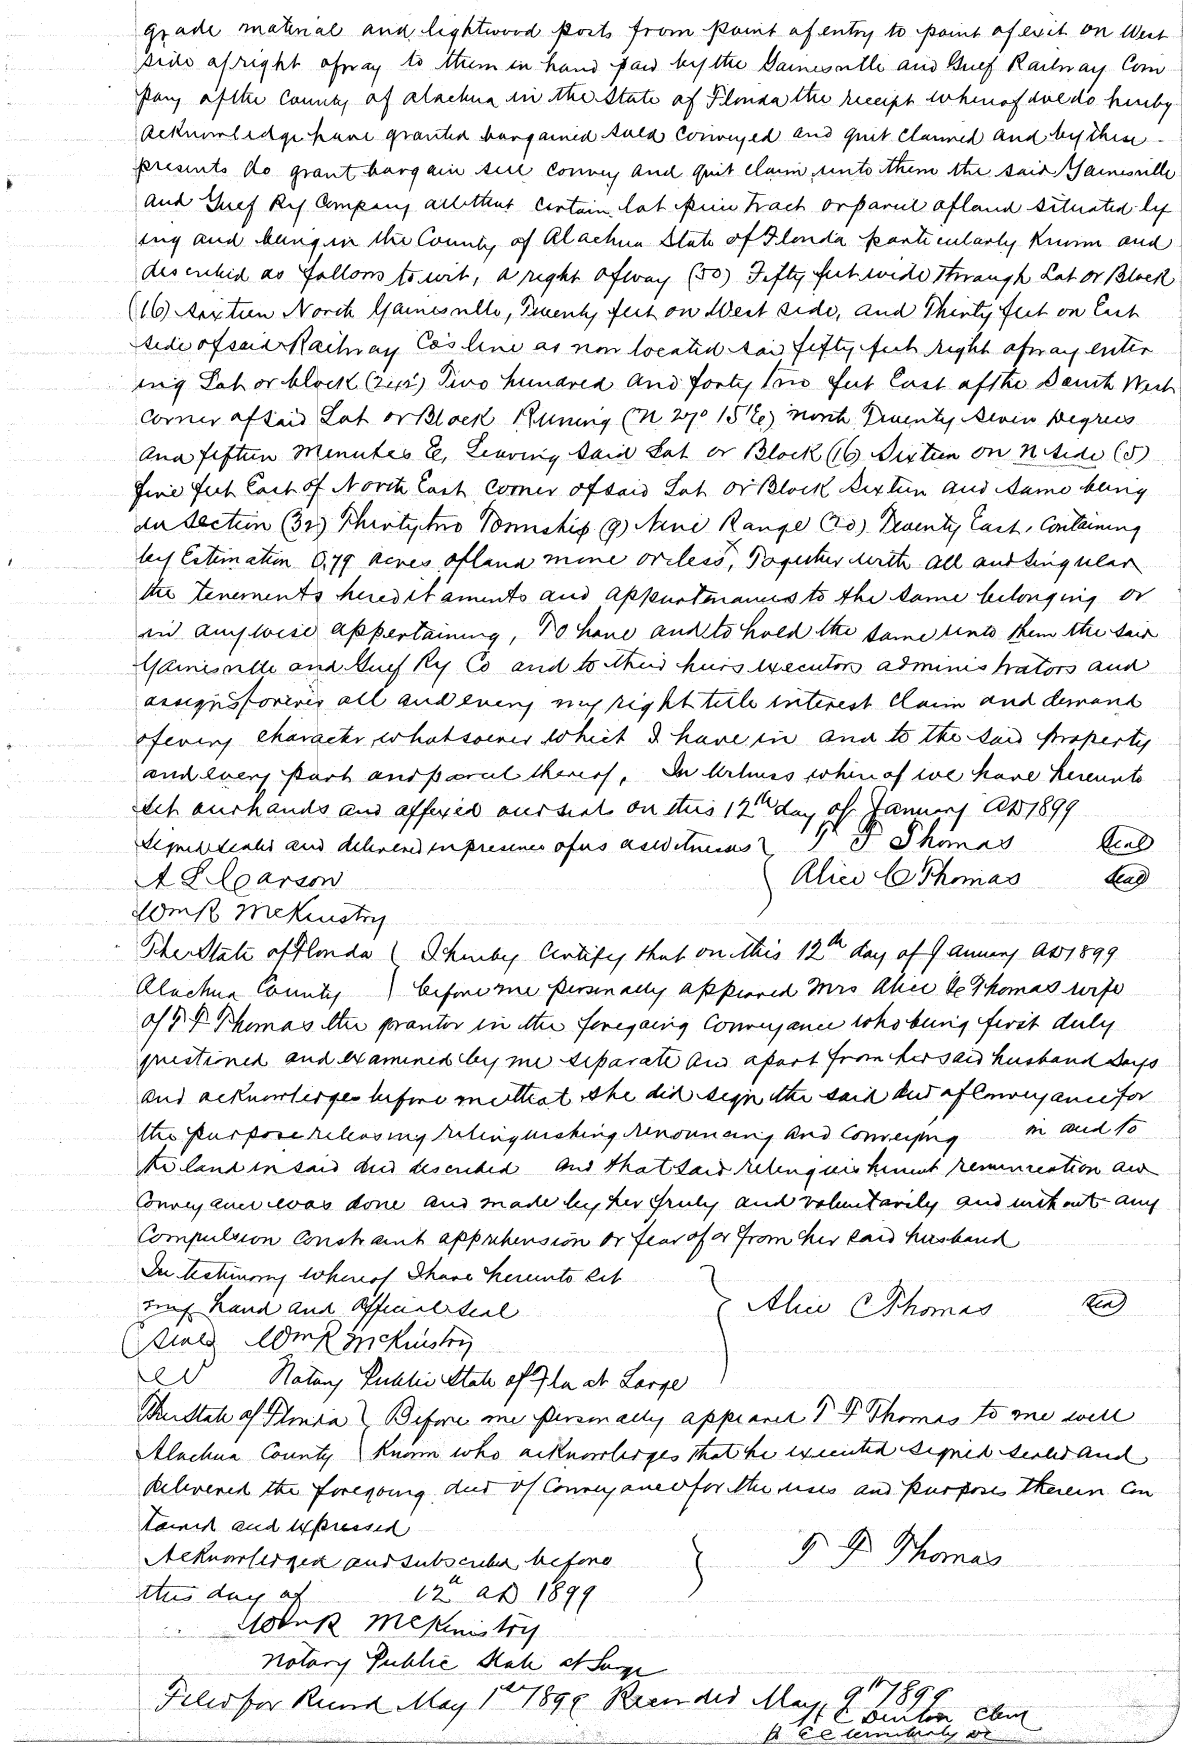 grade material and lightwood posts from point of entry to point of exit on West
side of right of way to them in hand paid by the Gainesville and Gulf Railway Com
pany of the County of Alachua in the State of Florida the receipt whereof we do hereby
acknowledge have granted bargained sold conveyed and quit claimed and by these
presents do grant bargain sell convey and quit claim unto them the said Gainesville
and Gulf Ry Company all that certain lot piece tract or parcel of land situated ly
ing and being in the County of Alachua State of Florida particularly known and
described as follows to wit, a right of way (50) Fifty feet wide through Lot or Block
(16) Sixteen North Gainesville, Twenty feet on West side, and Thirty feet on East
side of said Railway Co's line as now located said fifty feet right of way enter
ing Lot or block (242) Two hundred and forty two feet East of the South West
corner of said Lot or Block Runing (N 27° 15' E) North Twenty Seven Degrees
and fifteen Minutes E, Leaving said Lot or Block (16) Sixteen on N side (5)
five feet East of North East corner of said Lot or Block Sixteen and same being
in Section (32) Thirty two Township (9) Nine Range (20) Twenty East, Containing
by Estimation 0,79 acres of land more or less, Together with all and singular
the tenements hereditaments and appurtenances to the same belonging or
in anywise appertaining, To have and to hold the same unto them the said
Gainesville and Gulf Ry Co and to their heirs executors administrators and
assigns forever all and every my right title interest claim and demand
of every character whatsoever which I have in and to the said property
and every part and parcel thereof, In Witness whereof we have hereunto
set our hands and affixed our seals on this 12th day of January AD 1899
Signed sealed and delivered in presence of us as witnesses } T F Thomas Seal
A L Carson } Alice C Thomas Seal
Wm R McKinstry
The State of Florida } I hereby certify that on this 12th day of January AD 1899
Alachua County } before me personally appeared Mrs Alice C Thomas wife
of T F Thomas the grantor in the foregoing conveyance who being first duly
questined and examined by me separate and apart from her said husband says
and acknowledges before me that she did sign the said deed of conveyance for
the purpose releasing relinquishing renouncing and conveying in and to
the land in said deed described and that said relinquishment renunciation and
conveyance was done and made by her freely and voluntarily and without any
compulsion constraint apprehension or fear of or from her said husband
In testimony whereof I have hereunto set
my hand and official seal } Alice C Thomas Seal
(Seal) Wm R McKinstry
Notary Public State of Fla at Large
The State of Florida } Before me personally appeared T F Thomas to me well
Alachua County } known who acknowledges that he executed signed sealed and
delivered the foregoing deed of conveyance for the uses and purposes therein con
tained and expressed
Acknowledged and subscribed before } T F Thomas
this day of 12th AD 1899
Wm R McKinstry
Notary Public State at Large
Filed for Record May 1st 1899 Recorded May 9th 1899
H C Denton Clerk